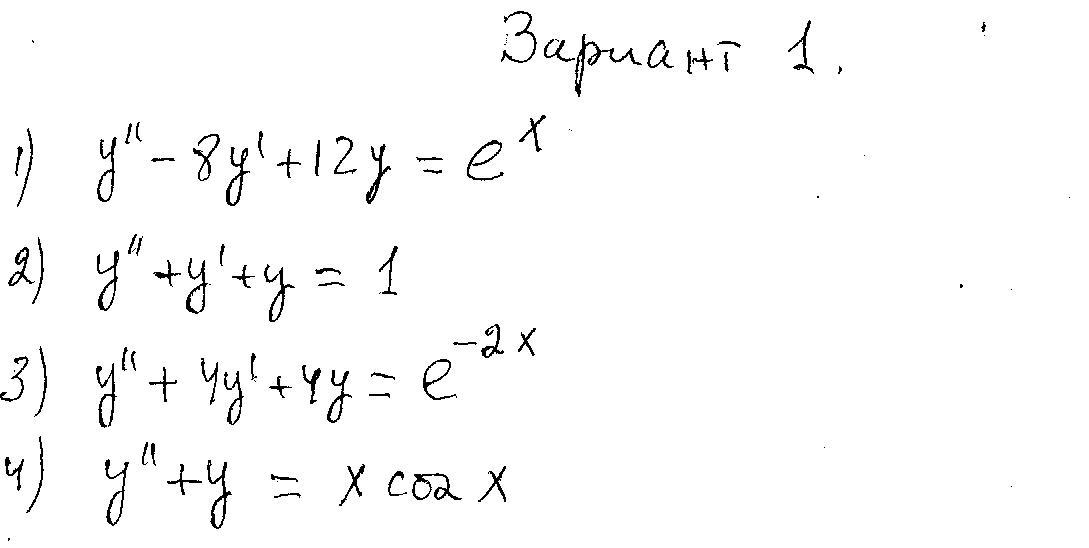 Вариант 1.
1) y'' - 8y' + 12y = e^x
2) y'' + y' + y = 1
3) y'' + 4y' + 4y = e^{-2x}
4) y'' + y = x cos x